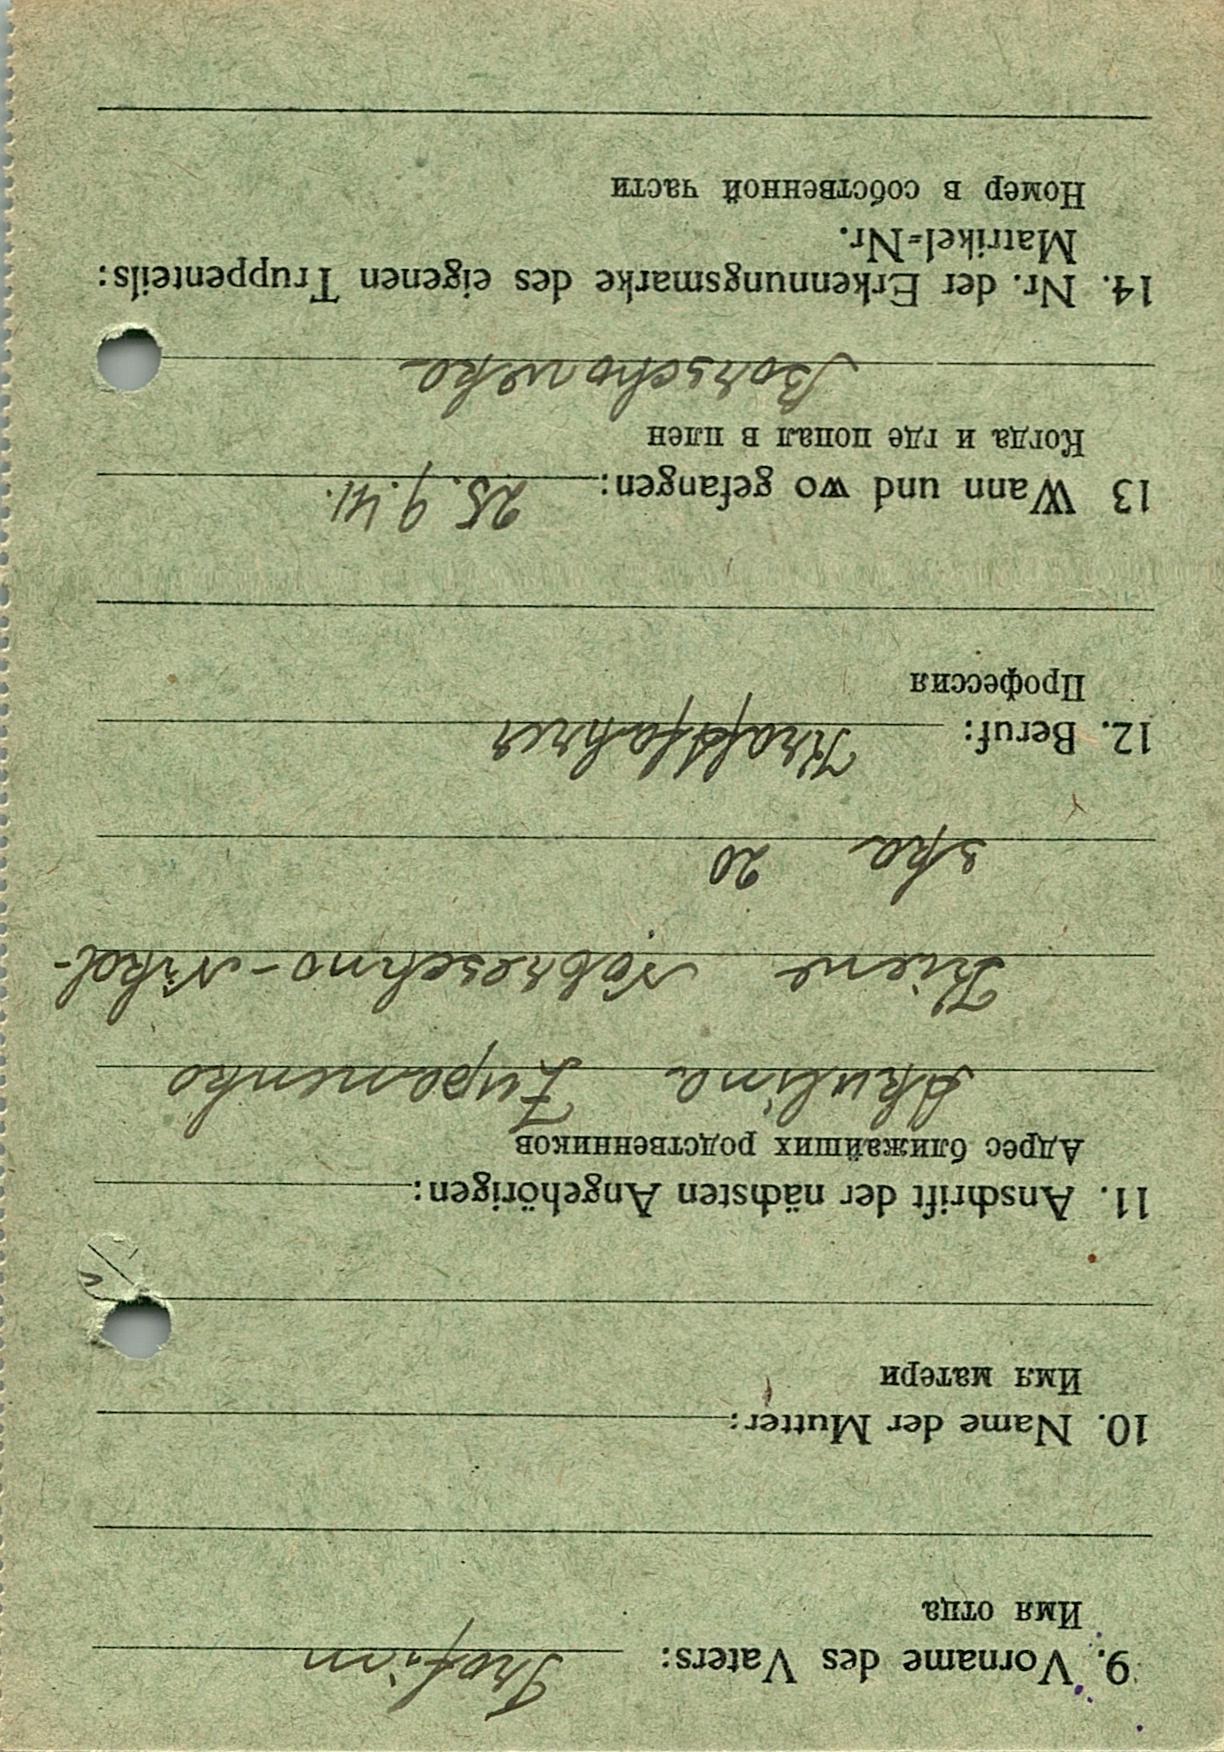 9. Vorname des Vaters: Trofim
Имя отца
10. Name der Mutter:
Имя матери
11. Anschrift der nächsten Angehörigen:
Адрес ближайших родственников
Akulina Zupanenko
Kiew Nabreschno-Nikol-
ska 20
12. Beruf: Kraftfahrer
Профессия
13 Wann und wo gefangen: 25.9.41.
Когда и где попал в плен
Borschowka
14. Nr. der Erkennungsmarke des eigenen Truppenteils:
Matrikel=Nr.
Номер в собственной части